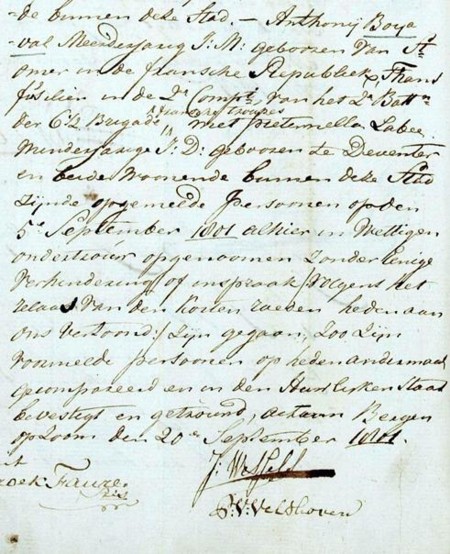 de binnen deze Stad. — Anthonij Boya
-val Meerderjarig J: M: geboren van St
omer in de fransche Republiek, Thans
fusilier in de 2e Compe van het 2e Battn
der 62 Brigade fransche trouppes met Pieternella Labee
Minderjarige J: D: geboren te Deventer
en beide woonende binnen deze Stad
Zijnde opgemelde Persoonen op den
5e September 1801 alhier in Wettigen
ondertrouw opgenoomen Zonder Eenige
Verhindering of inspraak /: Volgens het
relaas van den Kosten raeden heden aan
ons vertoond :/ Zijn gegaan, Zoo Zijn
voormelde persoonen op heden andermaal
gecompareerd en in den Huwlijken Staat
bevestigt en getrouwd, actum Bergen
opzoom den 20en September 1801.
J: Wessels
Fauzer
P: V: Velthoven